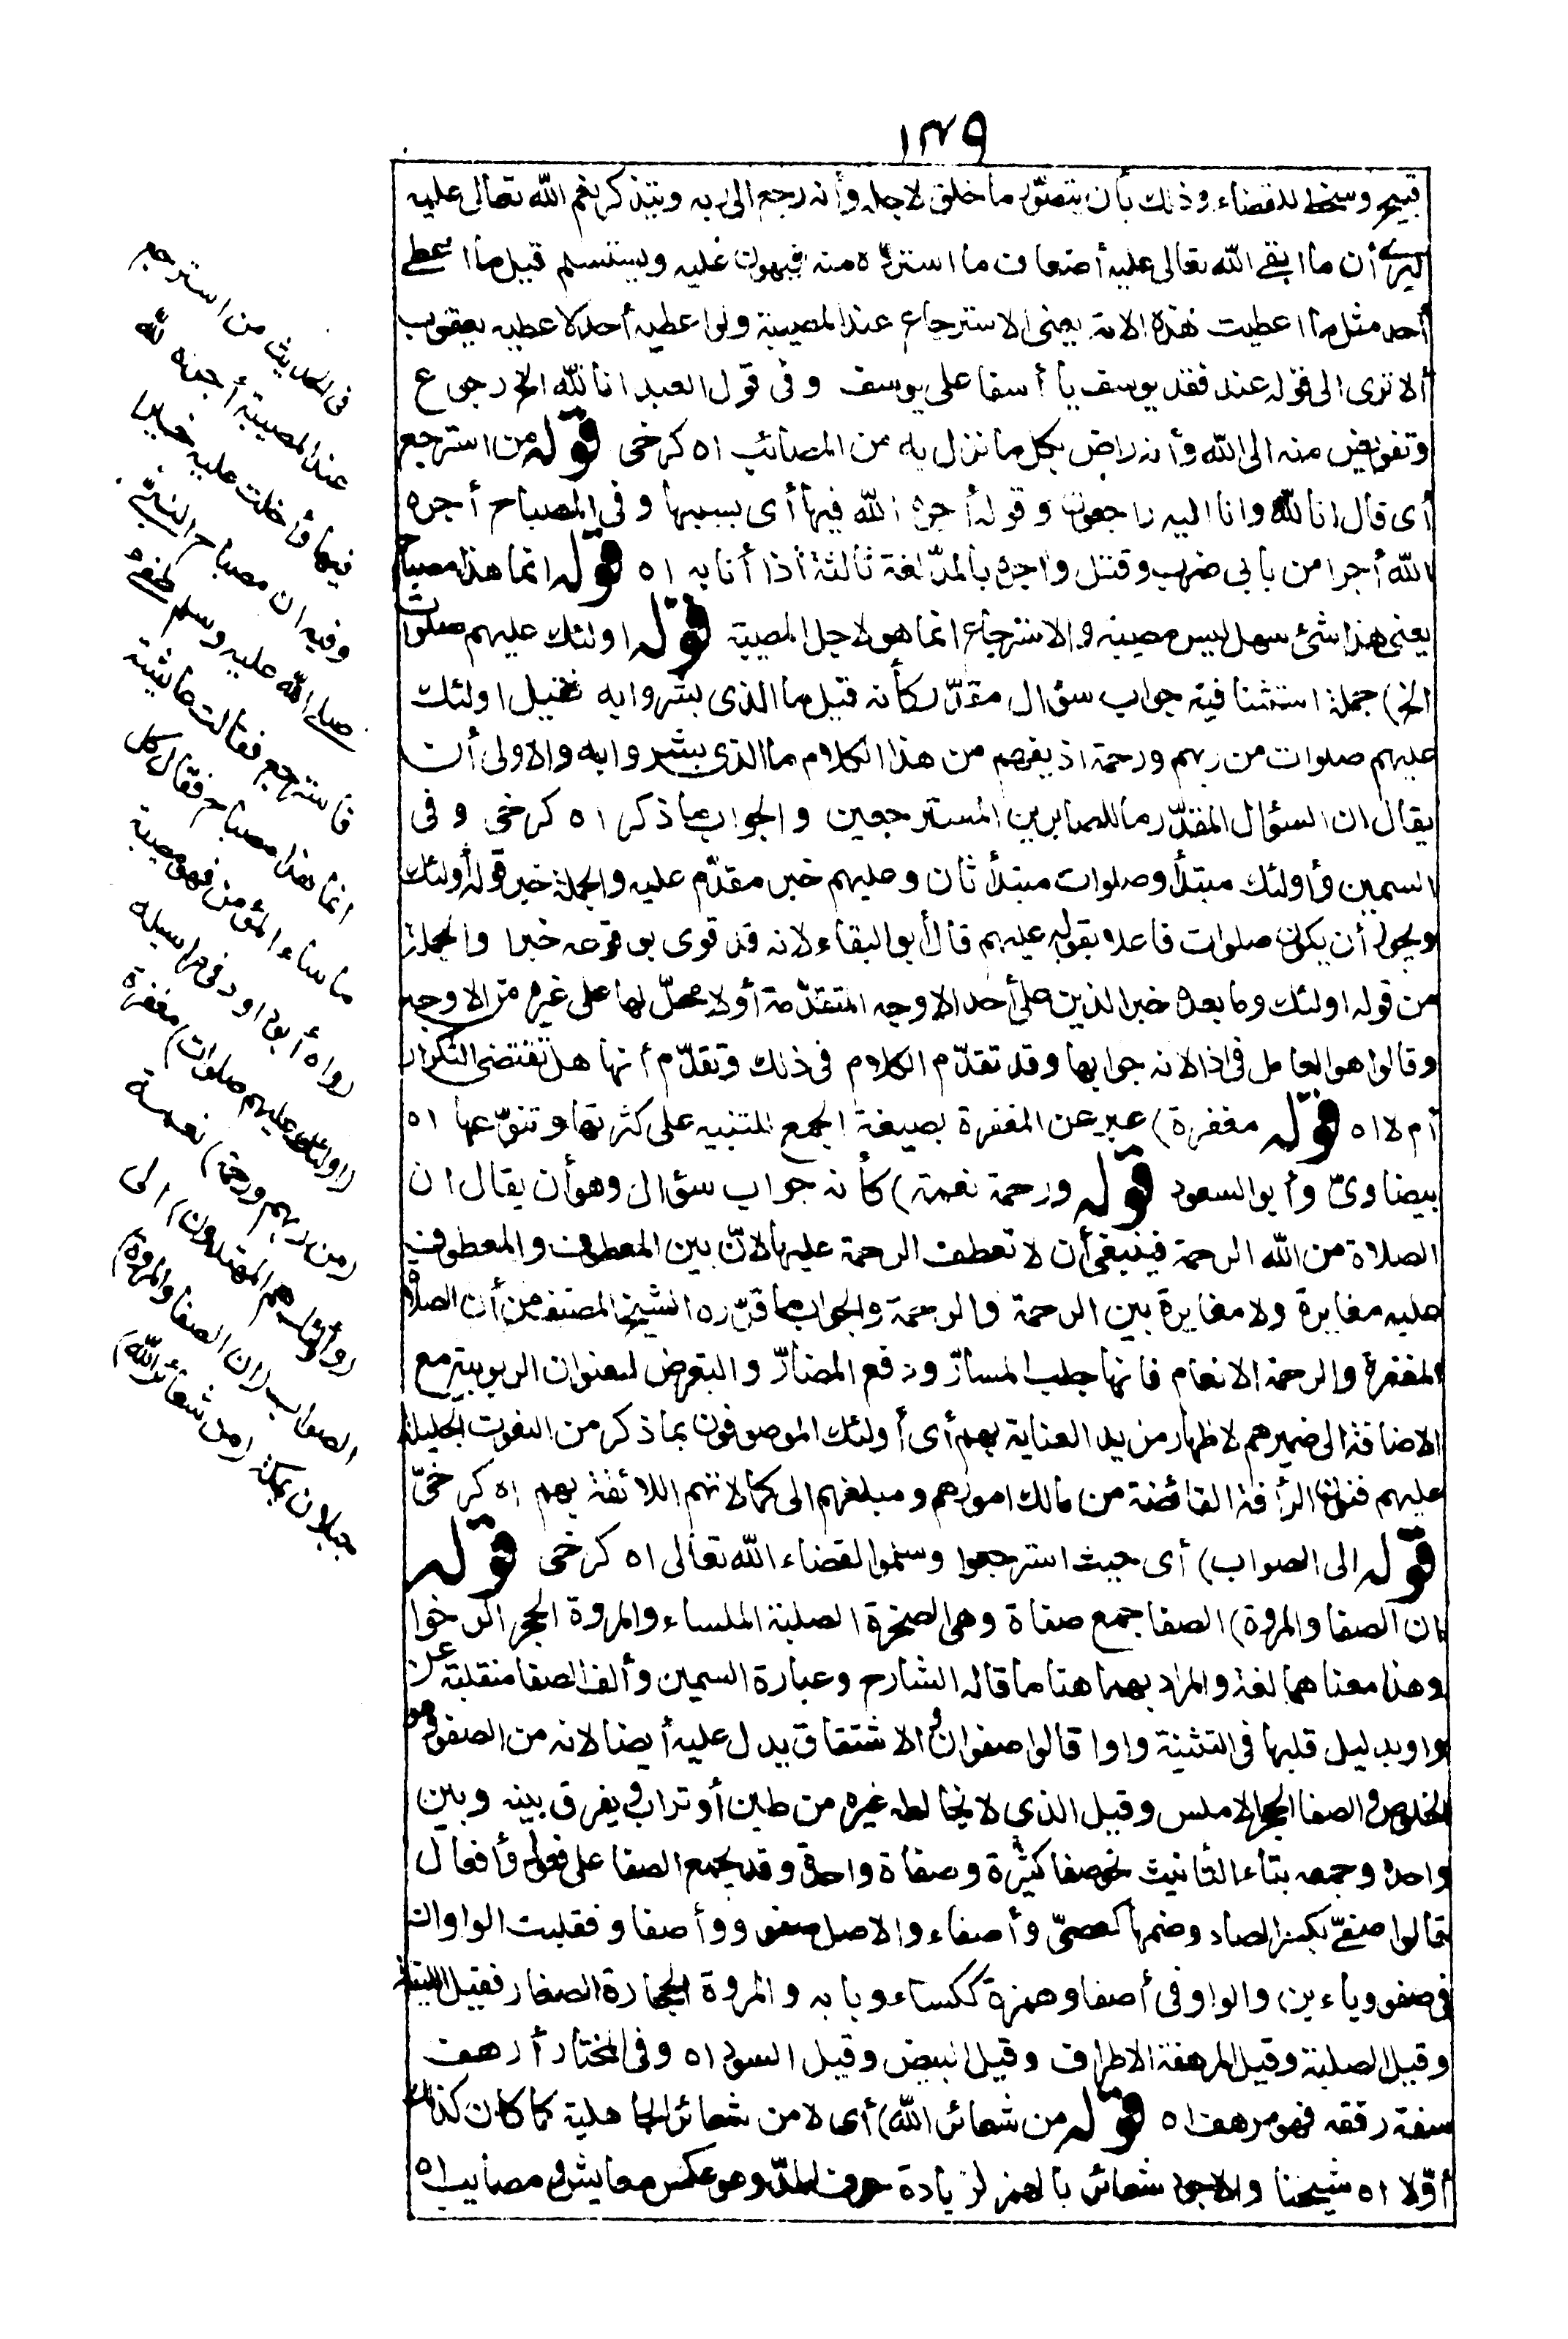 ١٢٩
قبيح وسخط للقضاء وذلك بأن يتصوّر ما خلق لاجله وأنه رجع الى ربه ويتذكر نعم الله تعالى عليه
ليرى أن ما ابقى الله تعالى عليه أضعاف ما استردّه منه فيهون عليه ويستسلم قيل ما اعطى
أحد مثل ما اعطيت هذه الامة يعنى الاسترجاع عند المصيبة ولو اعطيه أحد لاعطيه يعقوب
ألا ترى الى قوله عند فقد يوسف يا أسفا على يوسف وفى قول العبد انا لله الخ رجوع
وتفويض منه الى الله وأنه راض بكل ما نزل به من المصائب اه كرخى قوله من استرجع
أى قال انا لله وانا اليه راجعون وقوله أجره الله فيها أى بسببها وفى المصباح أجره
الله أجرا من بابى ضرب وقتل وآجره بالمدّ لغة ثالثة اذا أثابه اه قوله انما هذا مصباح
يعنى هذا شئ سهل ليس مصيبة والاسترجاع انما هو لاجل المصيبة قوله اولئك عليهم صلوات
الخ) جملة استئنافية جواب سؤال مقدّر كأنه قيل ما الذى بشروا به فقيل اولئك
عليهم صلوات من ربهم ورحمة اذ يفهم من هذا الكلام ما الذى بشروا به والاولى أن
يقال ان السؤال المقدّر ما للصابرين المسترجعين والجواب ما ذكر اه كرخى وفى
السمين وأولئك مبتدأ وصلوات مبتدأ ثان وعليهم خبر مقدّم عليه والجملة خبر قوله أولئك
ويجوز أن يكون صلوات فاعلا بقوله عليهم قال أبو البقاء لانه قد قوى بوقوعه خبرا والجملة
من قوله اولئك وما بعده خبر الذين على أحد الاوجه المتقدّمة أولا محلّ لها على غيره من الاوجه
وقالوا هو العامل فى اذا لانه جوابها وقد تقدّم الكلام فى ذلك وتقدّم أنها هل تقتضى التكرار
أم لا اه قوله مغفرة) عبر عن المغفرة بصيغة الجمع للتنبيه على كثرتها وتنوّعها اه
بيضاوىّ وأبو السعود قوله ورحمة نعمة) كأنه جواب سؤال وهو أن يقال ان
الصلاة من الله الرحمة فينبغى أن لا تعطف الرحمة عليها لانّ بين المعطوف والمعطوف
عليه مغايرة ولا مغايرة بين الرحمة والرحمة والجواب ما قرّره الشيخ المصنف من أن الصلاة
المغفرة والرحمة الانعام فانها جلب المسارّ ودفع المضارّ والتعرض لعنوان الربوبية مع
الاضافة الى ضميرهم لاظهار مزيد العناية بهم أى أولئك الموصوفون بما ذكر من النعوت الجليلة
عليهم فنون الرأفة الفائضة من مالك امورهم ومبلغهم الى كمالاتهم اللائقة بهم اه كرخىّ
قوله الى الصواب) أى حيث استرجعوا وسلموا لقضاء الله تعالى اه كرخى قوله
ان الصفا والمروة) الصفا جمع صفاة وهى الصخرة الصلبة الملساء والمروة الحجر الرخوا
وهذا معناهما لغة والمراد بهما هنا ما قاله الشارح وعبارة السمين وألف الصفا منقلبة عن
واو بدليل قلبها فى التثنية واوا قالوا صفوان والاشتقاق يدل عليه أيضا لانه من الصفو وهو
الخلوص والصفا الحجر الاملس وقيل الذى لا يخالطه غيره من طين أو تراب ويفرق بينه وبين
واحده وجمعه بتاء التأنيث نحو صفا كثيرة وصفاة واحدة وقد يجمع الصفا على فعول وأفعال
قالوا صفىّ بكسر الصاد وضمها كعصىّ وأصفاء والاصل صفوو وأصفاو فقلبت الواوان
فى صفوو ياءين والواو فى أصفاو همزة ككساء وبابه والمروة الحجارة الصغار فقيل اللينة
وقيل الصلبة وقيل المرهفة الاطراف وقيل البيض وقيل السود اه وفى المختار أرهف
سيفه رققه فهو مرهف اه قوله من شعائر الله) أى لا من شعائر الجاهلية كما كان كذلك
أوّلا اه شيخنا والاجود شعائر بالهمز لزيادة حرف المدّ وهو عكس معايش ومصايب اه
فى الحديث من استرجع
عند المصيبة أجره الله
فيها وأخلف عليه خيرا
وفيه ان مصباح النبىّ
صلى الله عليه وسلم طفئ
فاسترجع فقالت عائشة
انما هذا مصباح فقال كل
ما ساء المؤمن فهو مصيبة
رواه أبو داود فى مراسيله
(اولئك عليهم صلوات) مغفرة
(من ربهم ورحمة) نعمة
(وأولئك هم المهتدون) الى
الصواب (ان الصفا والمروة)
جبلان بمكة (من شعائر الله)